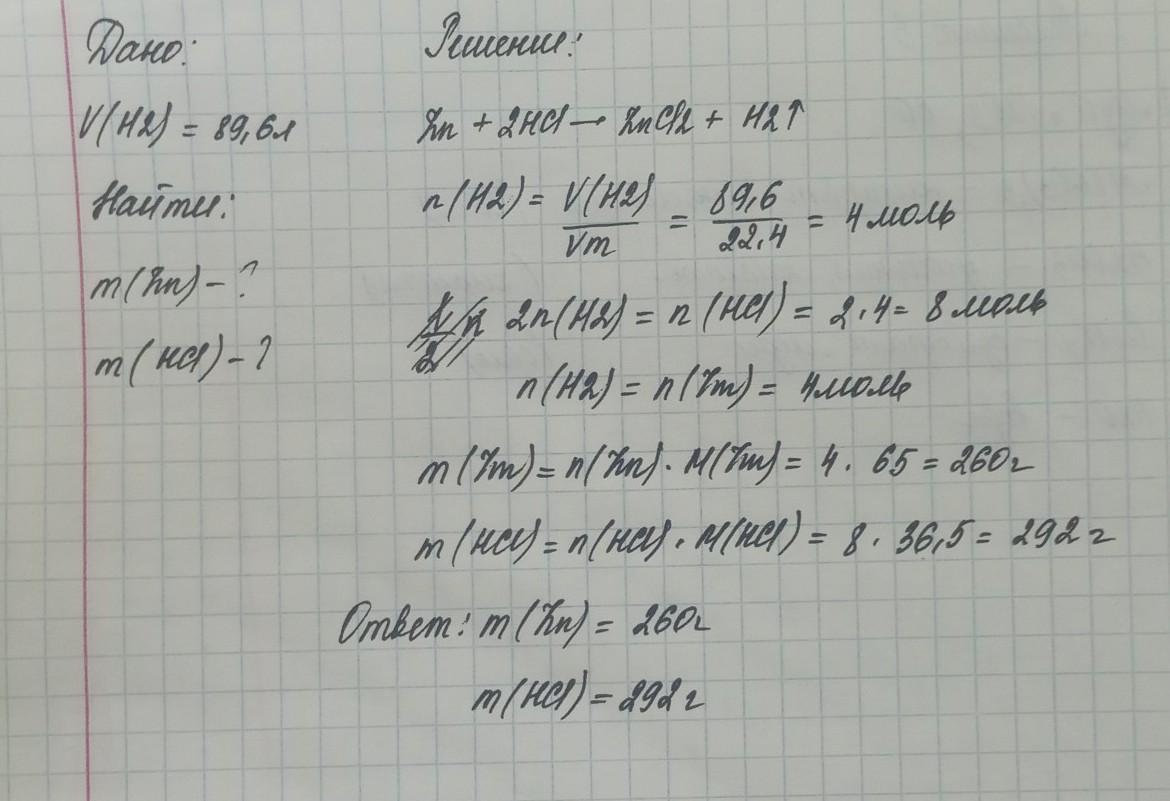 Дано:
V(H2) = 89,6л
Найти:
m(Zn) - ?
m(HCl) - ?
Решение:
Zn + 2HCl → ZnCl2 + H2↑
n(H2) = V(H2)/Vm = 89,6/22,4 = 4 моль
2n(H2) = n(HCl) = 2·4 = 8 моль
n(H2) = n(Zn) = 4 моль
m(Zn) = n(Zn) · M(Zn) = 4 · 65 = 260г
m(HCl) = n(HCl) · M(HCl) = 8 · 36,5 = 292 г
Ответ: m(Zn) = 260г
m(HCl) = 292 г